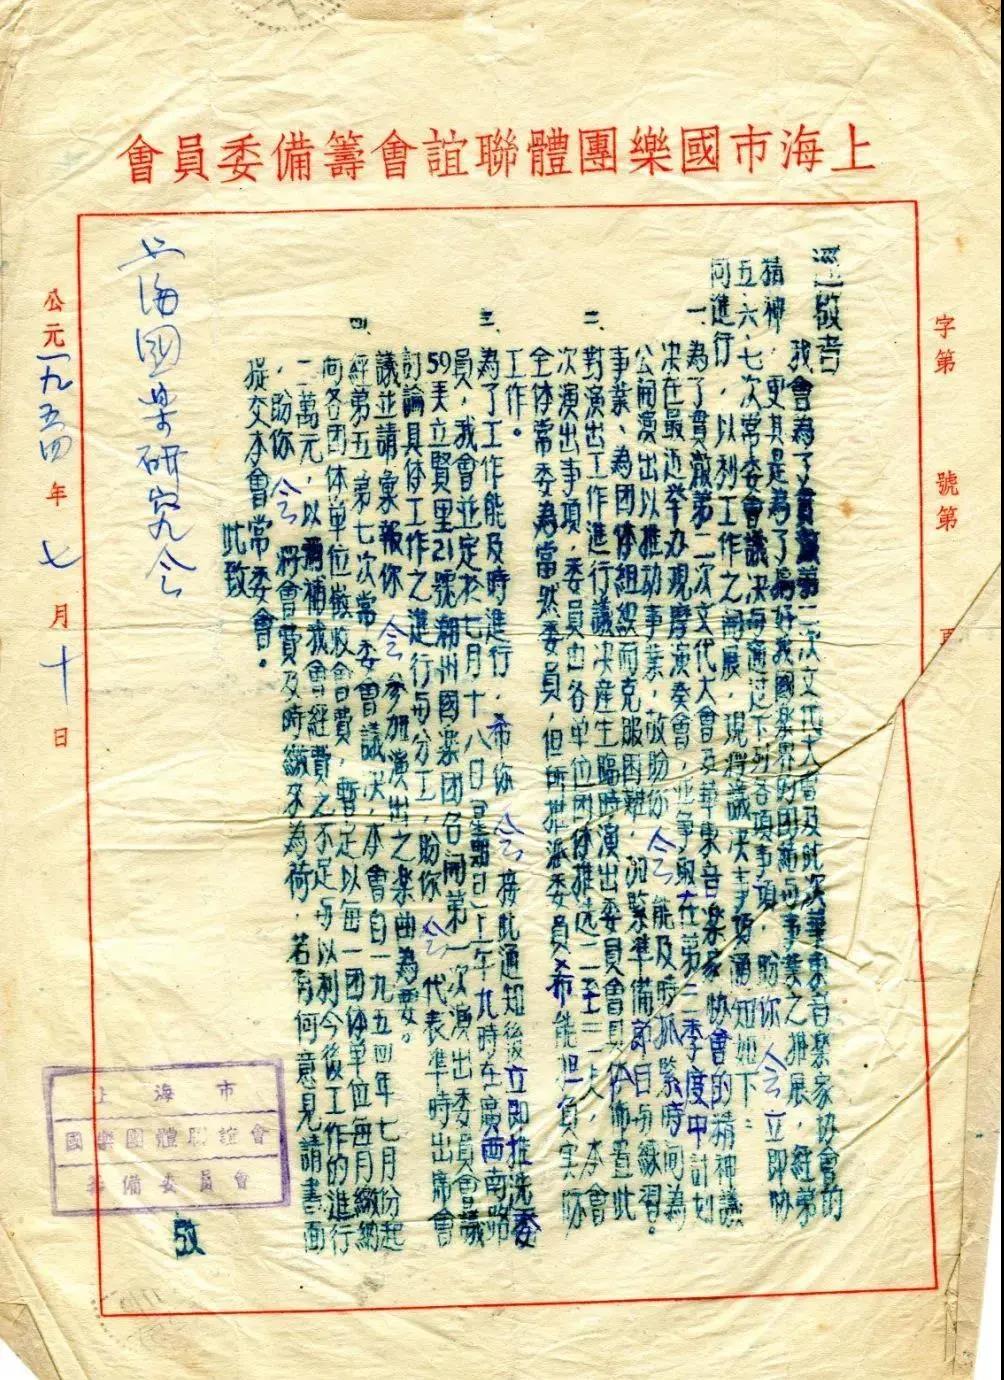 上海市國樂團體聯誼會籌備委員會
字第 號第 頁
逕啟者
我會為了貫徹第二次文代大會及此次華東音樂家協會的
精神，更其是為了搞好我國樂界的團結与事業之推展，經第
五、六、七次常委會議决与通过下列各項事項，盼你会立即协
同進行，以利工作之開展，現將議决事項通知如下：
一、為了貫徹第二次文代大會及華東音樂家協會的精神議
决在最近举办观摩演奏會，並争取在第三季度中計划
公開演出以推动事業，敬盼你会能及時抓緊時间為
事業、為团体組織而克服困難，加緊準備節目与練習。
二、對演出工作進行議决產生臨時演出委員會具体佈置此
次演出事項，委員由各單位团体推选二至三人，本會
全体常委為當然委員，但所推派委員希能担負实际
工作。
三、為了工作能及時進行，希你会接此通知後立即推选委
員，我會並定於七月十八日（星期日）上午九時在廣西南路
59弄立賢里21號潮州國樂团召開第一次演出委員會議
討論具体工作之進行与分工，盼你会代表準時出席會
議並請彙報你会参加演出之樂曲為要。
四、經第五第七次常委會議决，本會自一九五四年七月份起
向各团体單位徵收會費，暫定以每一团体單位每月繳納
二萬元，以弥補我會經費之不足与以利今後工作的進行
，盼你会將會費及時繳來為荷，若有何意見請書面
提交本會常委會。
此致
上海國樂研究会
敬
上海市
國樂團體聯誼會
籌備委員會
公元一九五四年七月十日